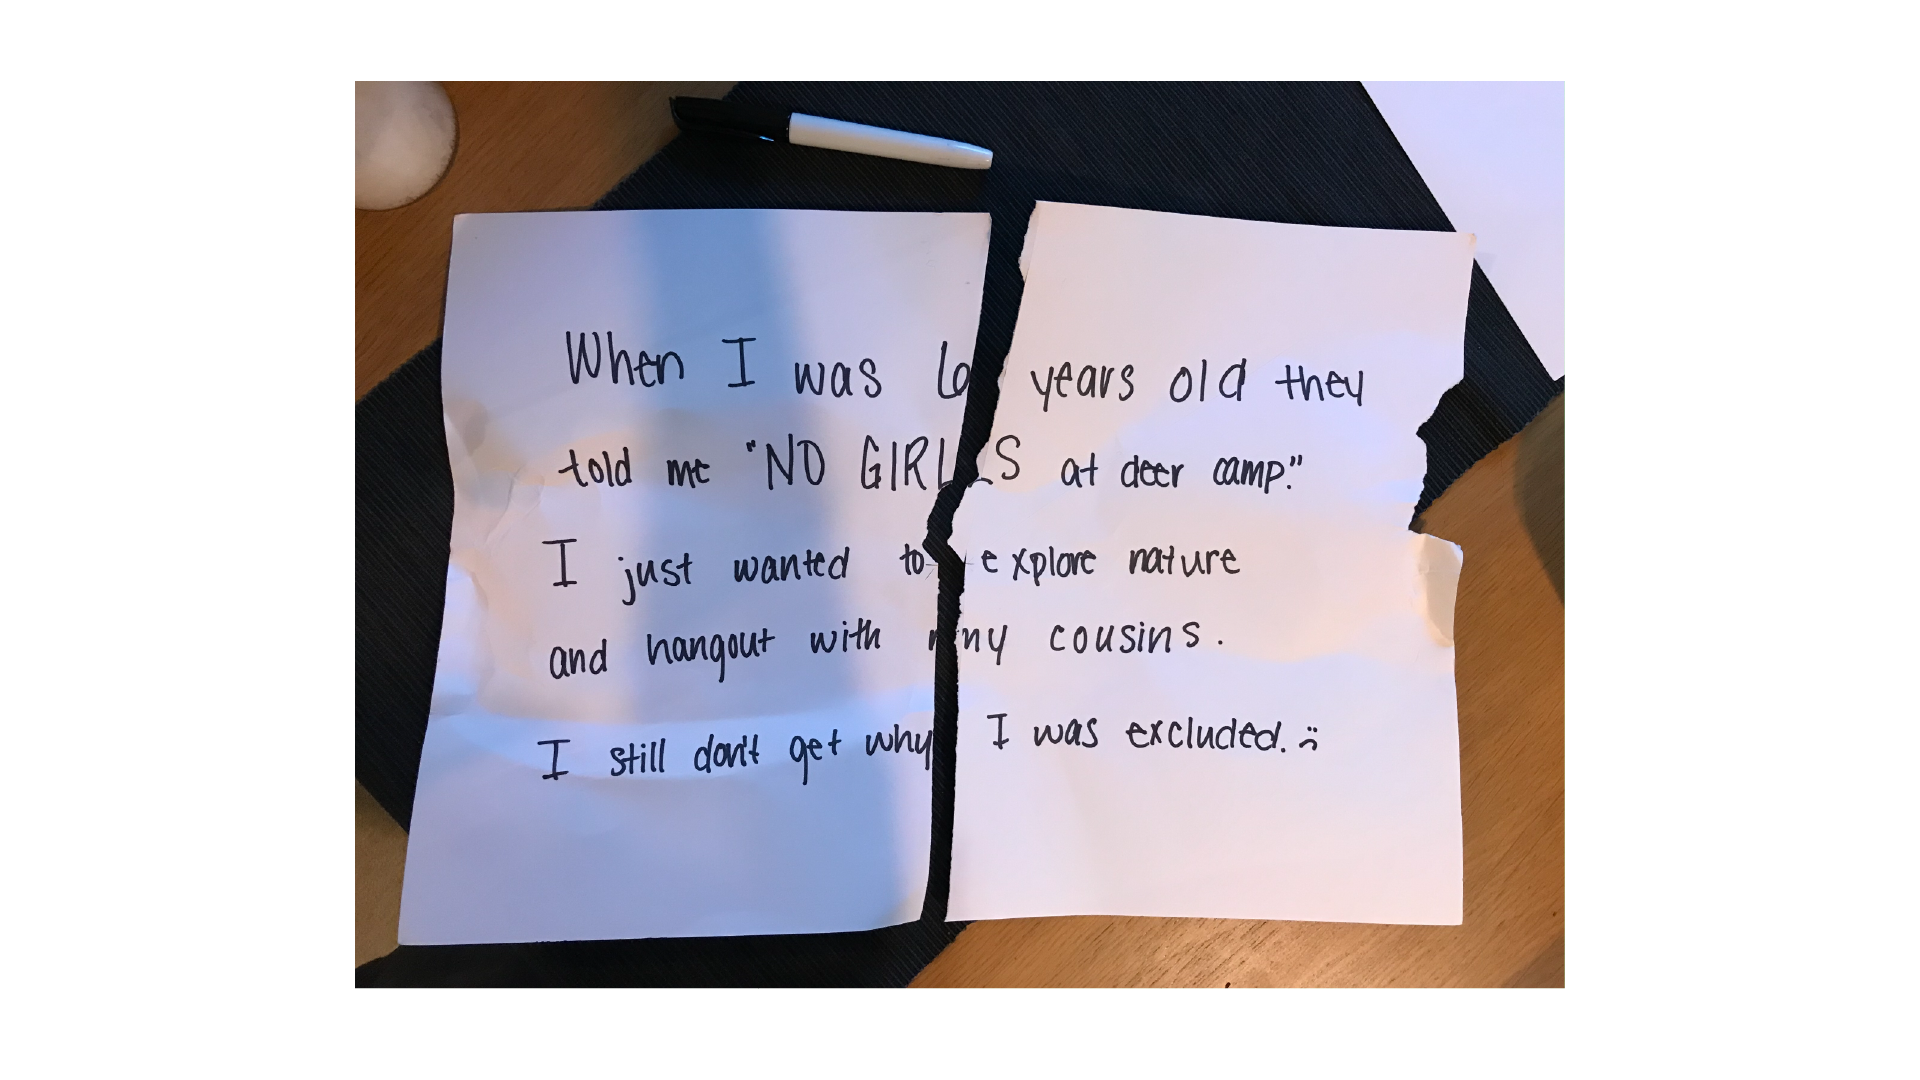 When I was 6 years old they
told me "NO GIRLS at deer camp."
I just wanted to explore nature
and hangout with my cousins.
I still don't get why I was excluded. :(